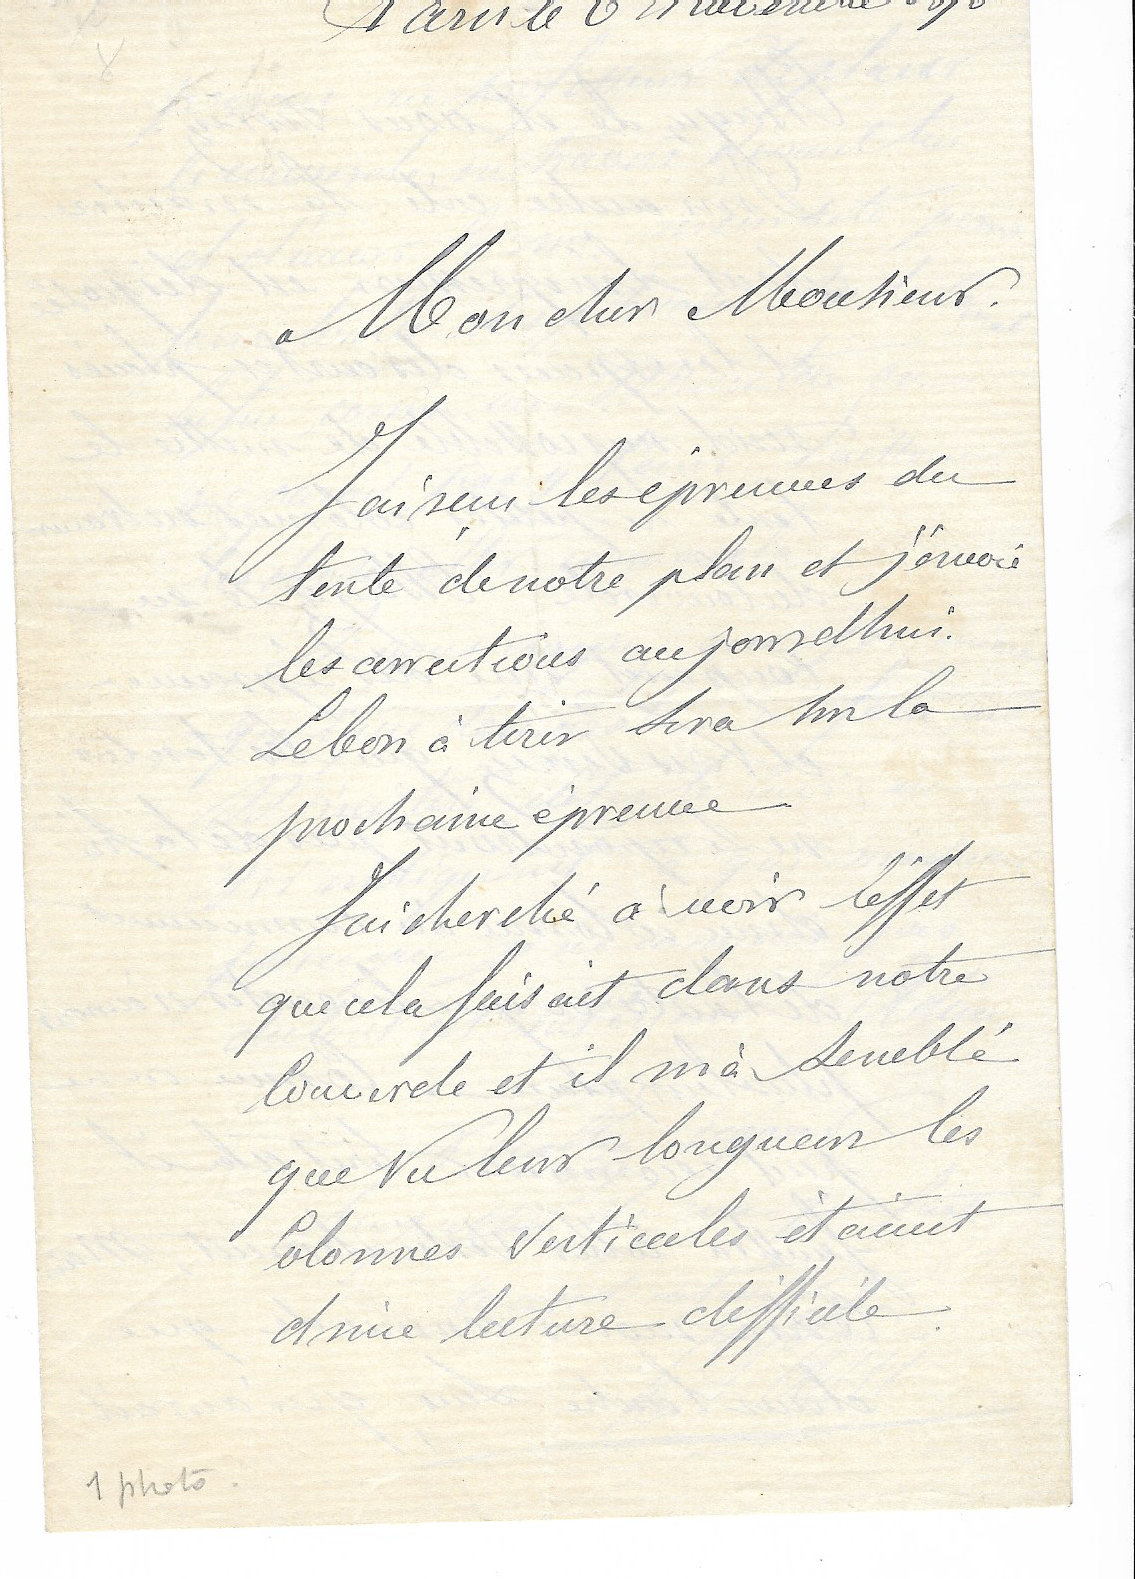 Paris le 6 Novembre
Mon cher Monsieur.
J'ai reçu les épreuves du
texte de notre plan et j'envoie
les corrections aujourdhui.
Le bon à tirer sera sur la
prochaine épreuve
J'ai cherché à voir l'éffet
que cela faisait dans notre
Concorde et il m'à semblé
que vu leur longueur les
Colonnes verticales étaient
d'une lecture difficile.
1 photo.